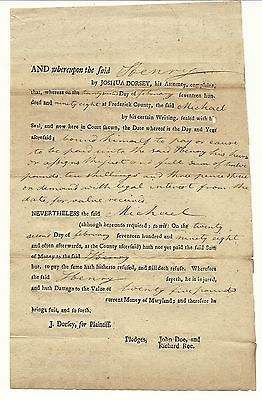 AND whereupon the said Henry
by JOSHUA DORSEY, his Attorney, complains,
that, whereas on the Day of february seventeen hun-
dred and ninety eight at Frederick County, the said Michael
by his certain Writing, sealed with his
Seal, and now here in Court shewn, the Date whereof is the Day and Year
aforesaid, himself to pay or cause
to be paid unto the said Henry his heirs
or assigns the just and full sum of twelve
pounds ten shillings and three pence
on demand with legal interest from
the date for value received
NEVERTHELESS the said Michael
(although hereunto required; to wit: On the twenty
second Day of february seventeen hundred and ninety eight
and often afterwards, at the County aforesaid) hath not yet paid the said Sum
of Money to the said Henry
but, to pay the same hath hitherto refused, and still doth refuse. Wherefore
the said Henry sayeth, he is injured,
and hath Damage to the Value of twenty five pounds
current Money of Maryland; and therefore he
brings suit, and so forth.
J. Dorsey, for Plaintiff.
Pledges, John Doe, and
Richard Roe.